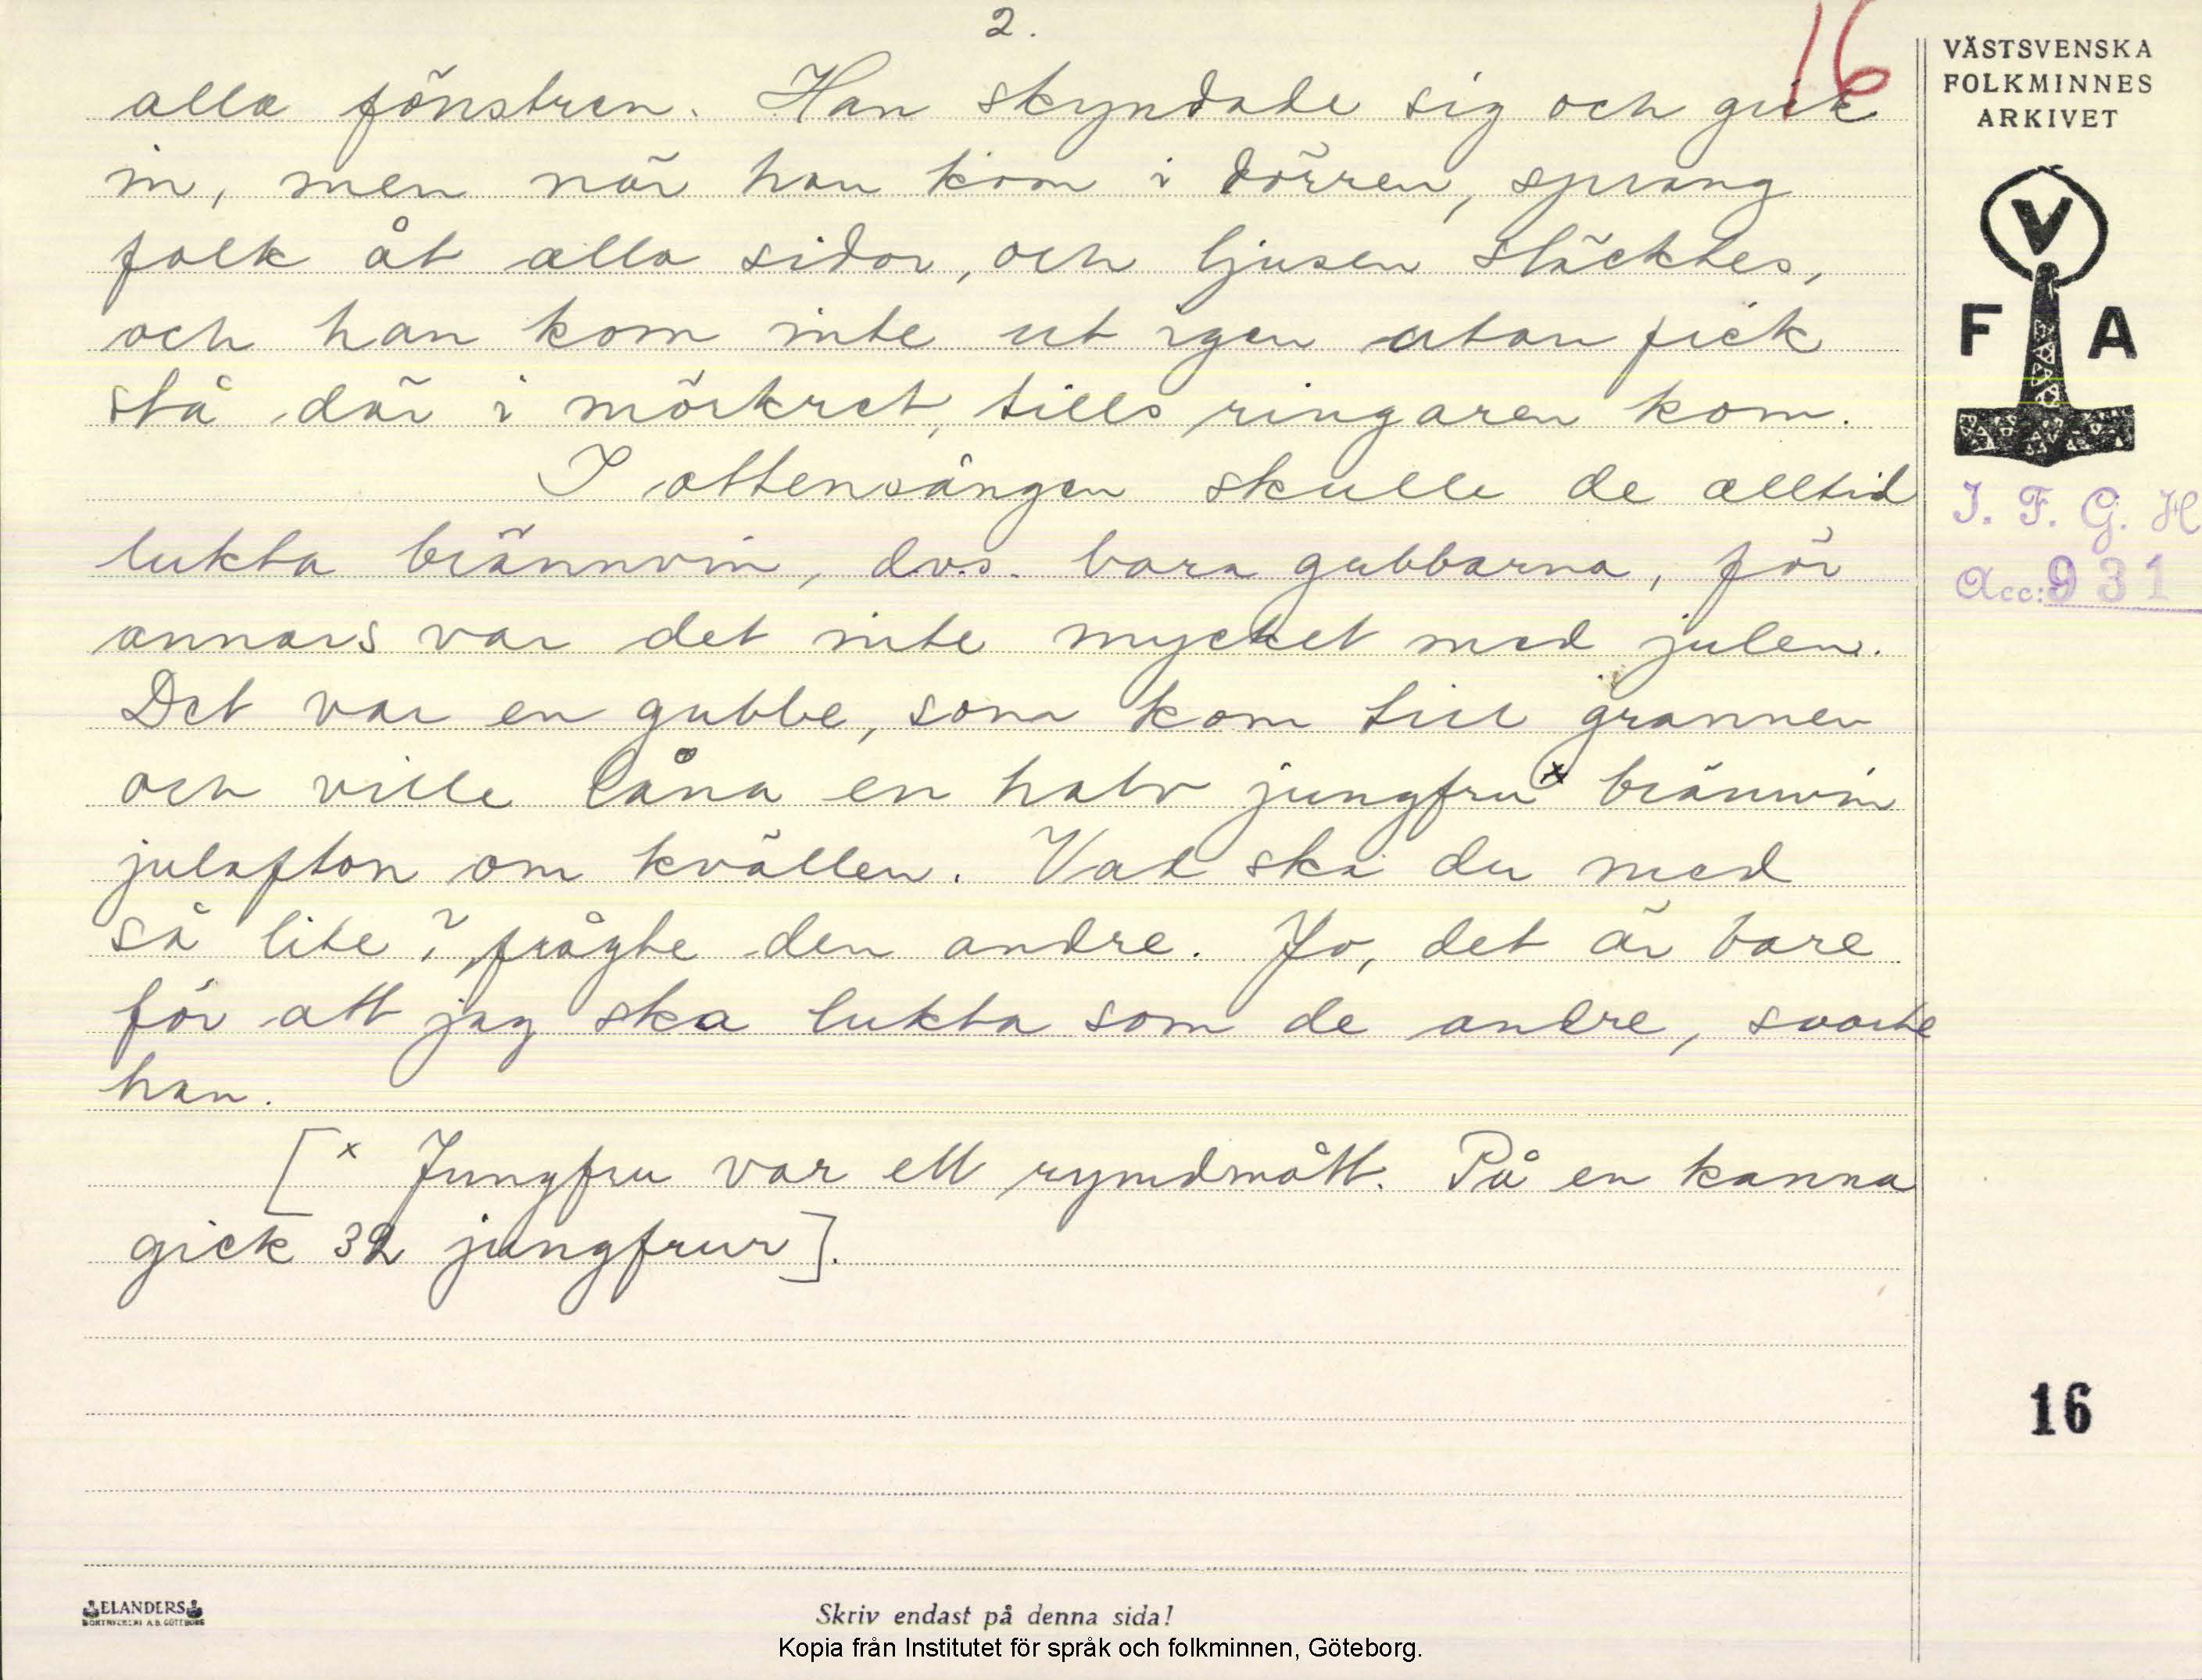 2.
16
alla fönstren. Han skyndade sig och gick
in, men när han kom i dörren, sprang
folk åt alla sidor, och ljusen släcktes,
och han kom inte ut igen utan fick
stå där i mörkret, tills ringaren kom.
I ottensången skulle de alltid
lukta brännvin, dvs. bara gubbarna, för
annars var det inte mycket med julen.
Det var en gubbe, som kom till grannen
och ville låna en halv jungfru x brännvin
julafton om kvällen. Vad ska du med
så lite? frågte den andre. Jo, det är bare
för att jag ska lukta som de andre, svarte
han.
[x Jungfru var ett rymdmått. På en kanna
gick 32 jungfrur].
VÄSTSVENSKA
FOLKMINNES
ARKIVET
V
F A
I. F. G. H
Acc: 931
16
ELANDERS
BOKTRYCKERI A.B. GÖTEBORG
Skriv endast på denna sida!
Kopia från Institutet för språk och folkminnen, Göteborg.